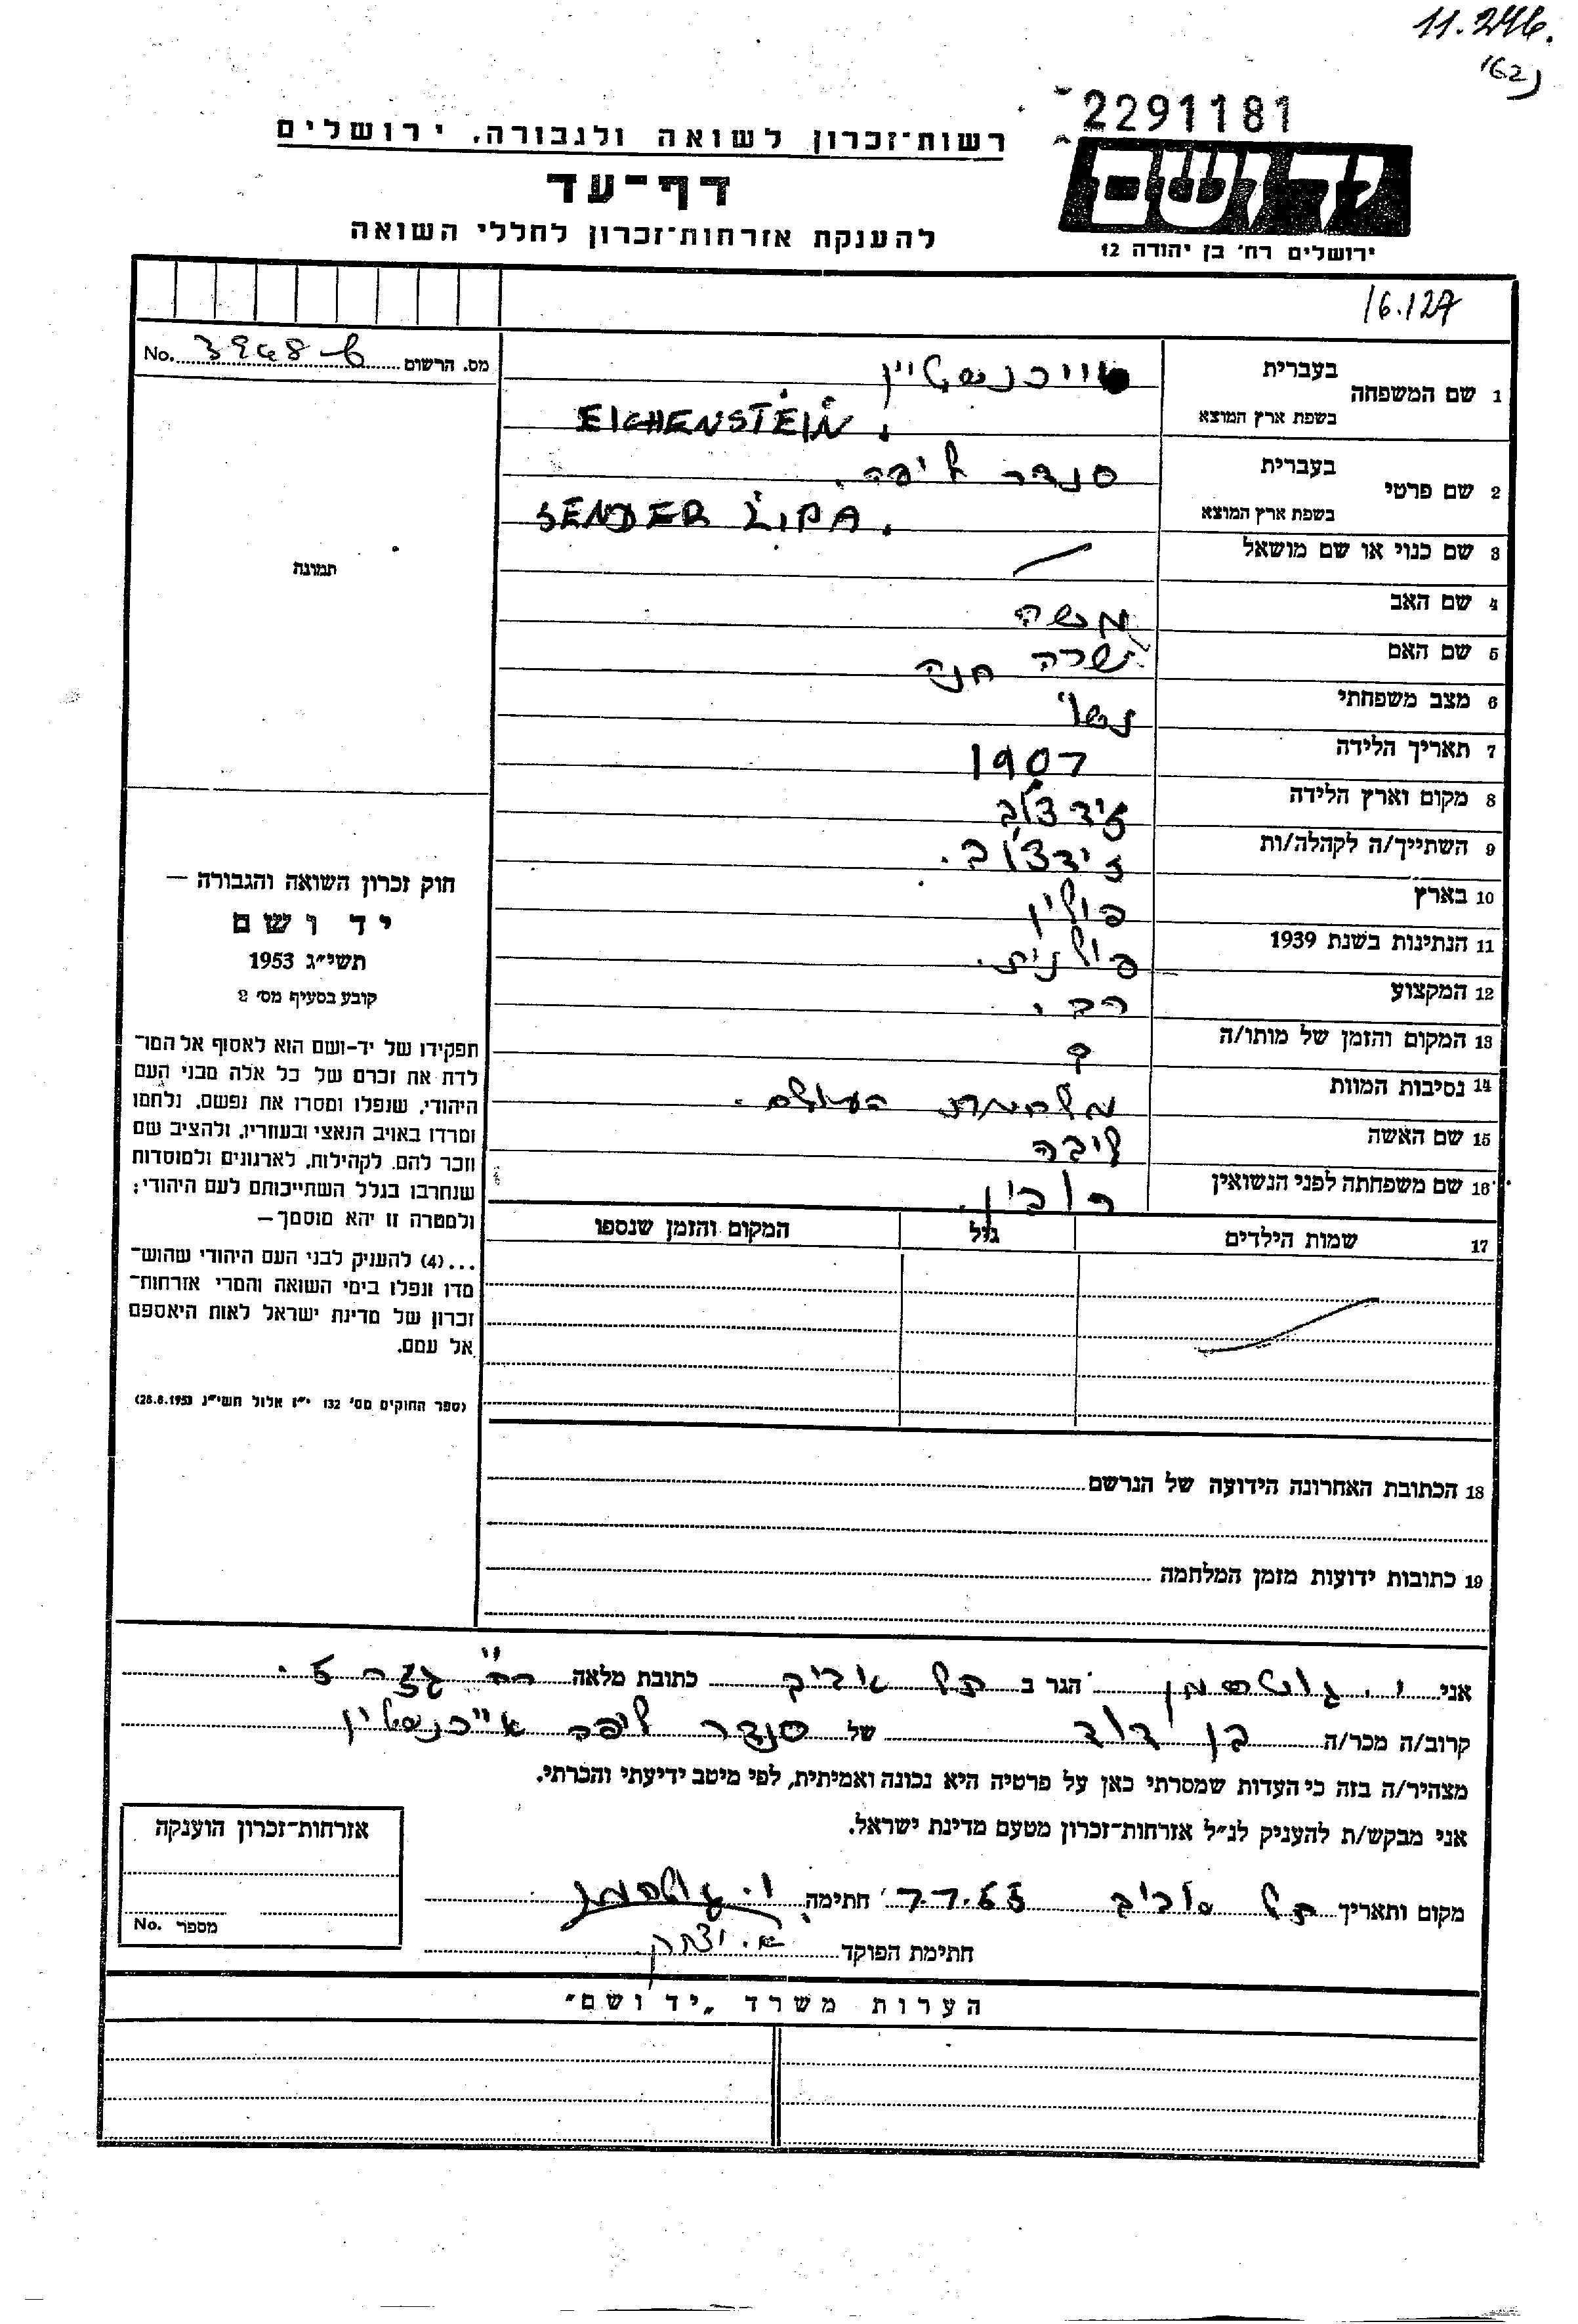 11.246.
(62)
2291181
יד ושם
ירושלים רח׳ בן יהודה 12
רשות־זכרון לשואה ולגבורה, ירושלים
דף־עד
להענקת אזרחות־זכרון לחללי השואה
16.127
מס. הרשום No.
1 שם המשפחה בעברית אייכנשטיין
בשפת ארץ המוצא EICHENSTEIN.
2 שם פרטי בעברית סנדר ליפה.
בשפת ארץ המוצא SENDER LIPA.
3 שם כנוי או שם מושאל —
4 שם האב משה
5 שם האם שרה חנה
6 מצב משפחתי נשוי
7 תאריך הלידה 1907
8 מקום וארץ הלידה זידצ'וב
9 השתייך/ה לקהלה/ות זידצ'וב.
10 בארץ פולין
11 הנתינות בשנת 1939 פולנית.
12 המקצוע רבי
13 המקום והזמן של מותו/ה ?
14 נסיבות המוות מלחמת העולם.
15 שם האשה ליבה
16 שם משפחתה לפני הנשואין רובין.
17 שמות הילדים גיל המקום והזמן שנספו
18 הכתובת האחרונה הידועה של הנרשם
19 כתובות ידועות מזמן המלחמה
תמונה
חוק זכרון השואה והגבורה —
יד ושם
תשי״ג 1953
קובע בסעיף מס׳ 2
תפקידו של יד-ושם הוא לאסוף אל המו־
לדת את זכרם של כל אלה מבני העם
היהודי, שנפלו ומסרו את נפשם, נלחמו
ומרדו באויב הנאצי ובעוזריו, ולהציב שם
וזכר להם, לקהילות, לארגונים ולמוסדות
שנחרבו בגלל השתייכותם לעם היהודי;
ולמטרה זו יהא מוסמך—
...(4) להעניק לבני העם היהודי שהוש־
מדו ונפלו בימי השואה והמרי אזרחות־
זכרון של מדינת ישראל לאות היאספם
אל עמם.
(ספר החוקים מס׳ 132 י״ז אלול תשי״ג 28.8.1953)
אני י. גוטסמן הגר ב תל אביב כתובת מלאה רח׳ 5.
קרוב/ה מכר/ה בן דוד של סנדר ליפה אייכנשטיין
מצהיר/ה בזה כי העדות שמסרתי כאן על פרטיה היא נכונה ואמיתית, לפי מיטב ידיעתי והכרתי.
אני מבקש/ת להעניק לנ״ל אזרחות־זכרון מטעם מדינת ישראל.
מקום ותאריך תל אביב 7.7.55 חתימה י. גוטסמן
חתימת הפוקד
אזרחות־זכרון הוענקה
מספר No.
הערות משרד „יד ושם״